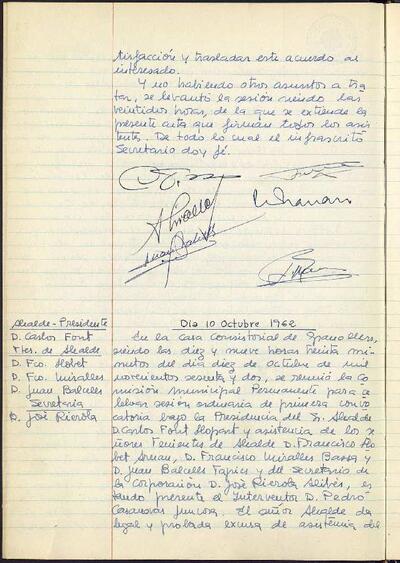 tisfacción y trasladar este acuerdo al
interesado.
Y no habiendo otros asuntos a tra
tar, se levantó la sesión siendo las
veintidos horas, de la que se extiende la
presente acta que firman todos los asis
tentes. De todo lo cual el infrascrito
Secretario doy fé.
Alcalde-Presidente
D. Carlos Font
Ttes. de Alcalde
D. Fco. Llobet
D. Fco. Miralles
D. Juan Balcells
Secretario
D. José Rierola
Dia 10 Octubre 1962
En la casa Consistorial de Granollers,
siendo las diez y nueve horas treinta mi-
nutos del día diez de octubre de mil
novecientos sesenta y dos, se reunió la Co
misión municipal Permanente para ce
lebrar sesión ordinaria de primera convo
catoria bajo la Presidencia del Sr. Alcalde
D. Carlos Font Llopart y asistencia de los se
ñores Tenientes de Alcalde D. Francisco Llo
bet Arnan, D. Francisco Miralles Bassa y
D. Juan Balcells Tapies y del Secretario de
la Corporación D. José Rierola Alibés, es
tando presente el Interventor D. Pedro
Casanovas Juncosa. El señor Alcalde da
legal y probada excusa de asistencia del